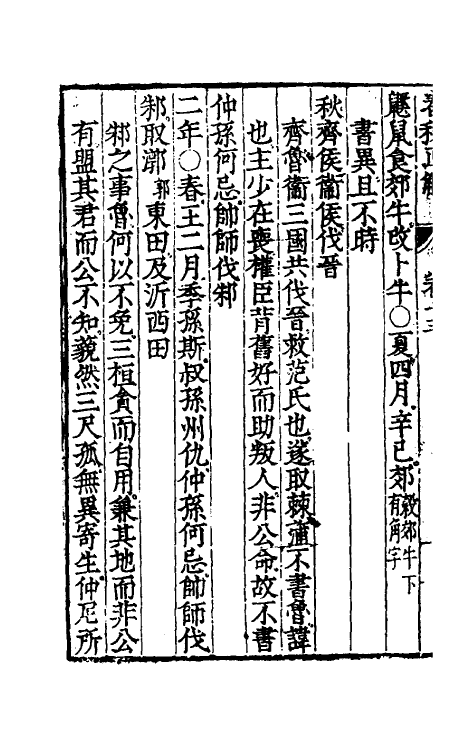 鼷鼠食郊牛改卜牛○夏四月辛巳郊穀郊牛下有角字
書異且不時
秋齊侯衞侯伐晉
齊魯衞三國共伐晉救范氏也遂取棘蒲不書魯諱
也主少在喪權臣背舊好而助叛人非公命故不書
仲孫何忌帥師伐邾
二年○春王二月季孫斯叔孫州仇仲孫何忌帥師伐
邾取漷郭東田及沂西田
邾之事魯何以不免三桓貪而自用兼其地而非公
有盟其君而公不知藐然三尺孤無異寄生仲尼所